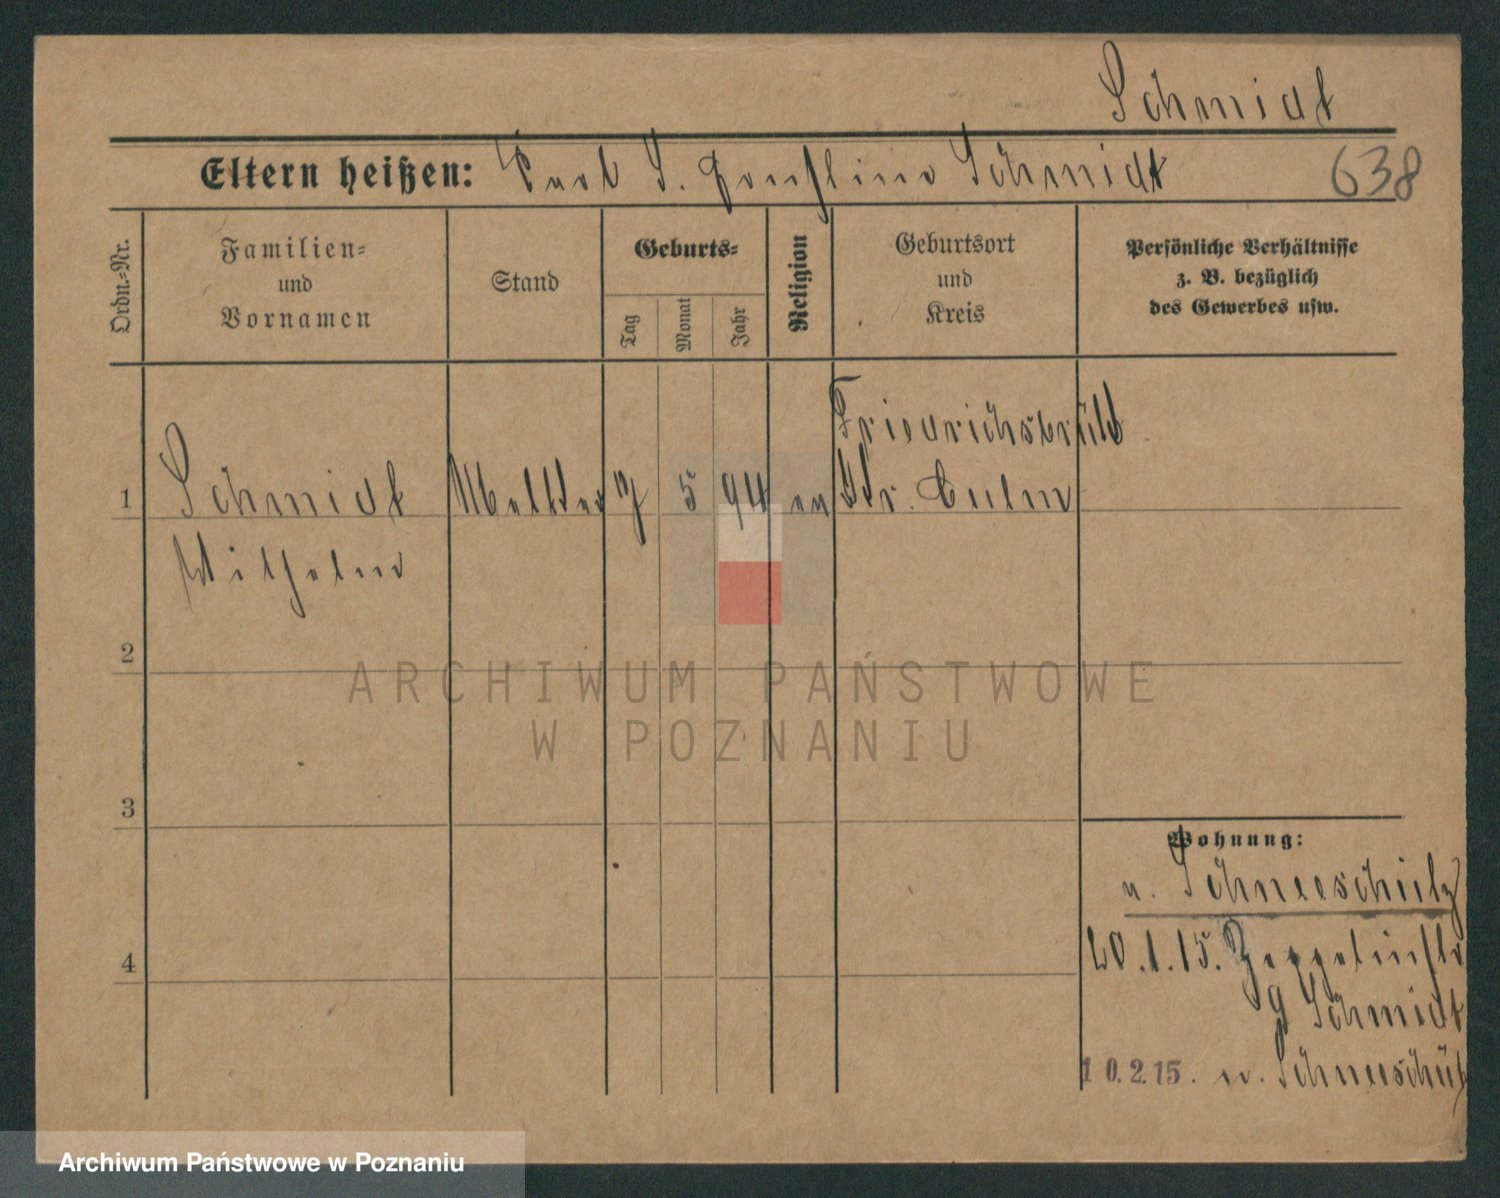 Schmidt
Eltern heißen: Carl S. Schmidt
638
Ordn.-Nr.
Familien-
und
Vornamen
Stand
Geburts-
Tag
Monat
Jahr
Religion
Geburtsort
und
Kreis
Persönliche Verhältnisse
z. B. bezüglich
des Gewerbes usw.
Friedrichsbruch
1 Schmidt 7 5 94 ev Kr. Culm
Wilhelm
2
ARCHIWUM PAŃSTWOWE
W POZNANIU
3
Wohnung:
n. Schneeschütz
4
20.1.15. Zeppelinstr
9 Schmidt
10.2.15. n. Schneeschütz
Archiwum Państwowe w Poznaniu